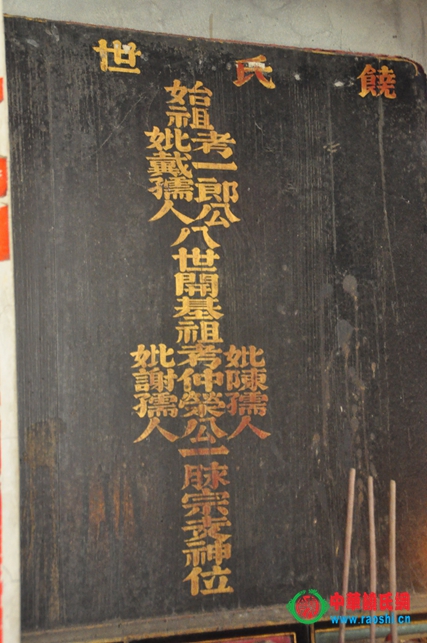 饒氏世
始祖
考一郎公
妣戴孺人
八世開基祖
妣陳孺人
考仲榮公
妣謝孺人
一脉宗支神位
中華饒氏網
www.raoshi.cn